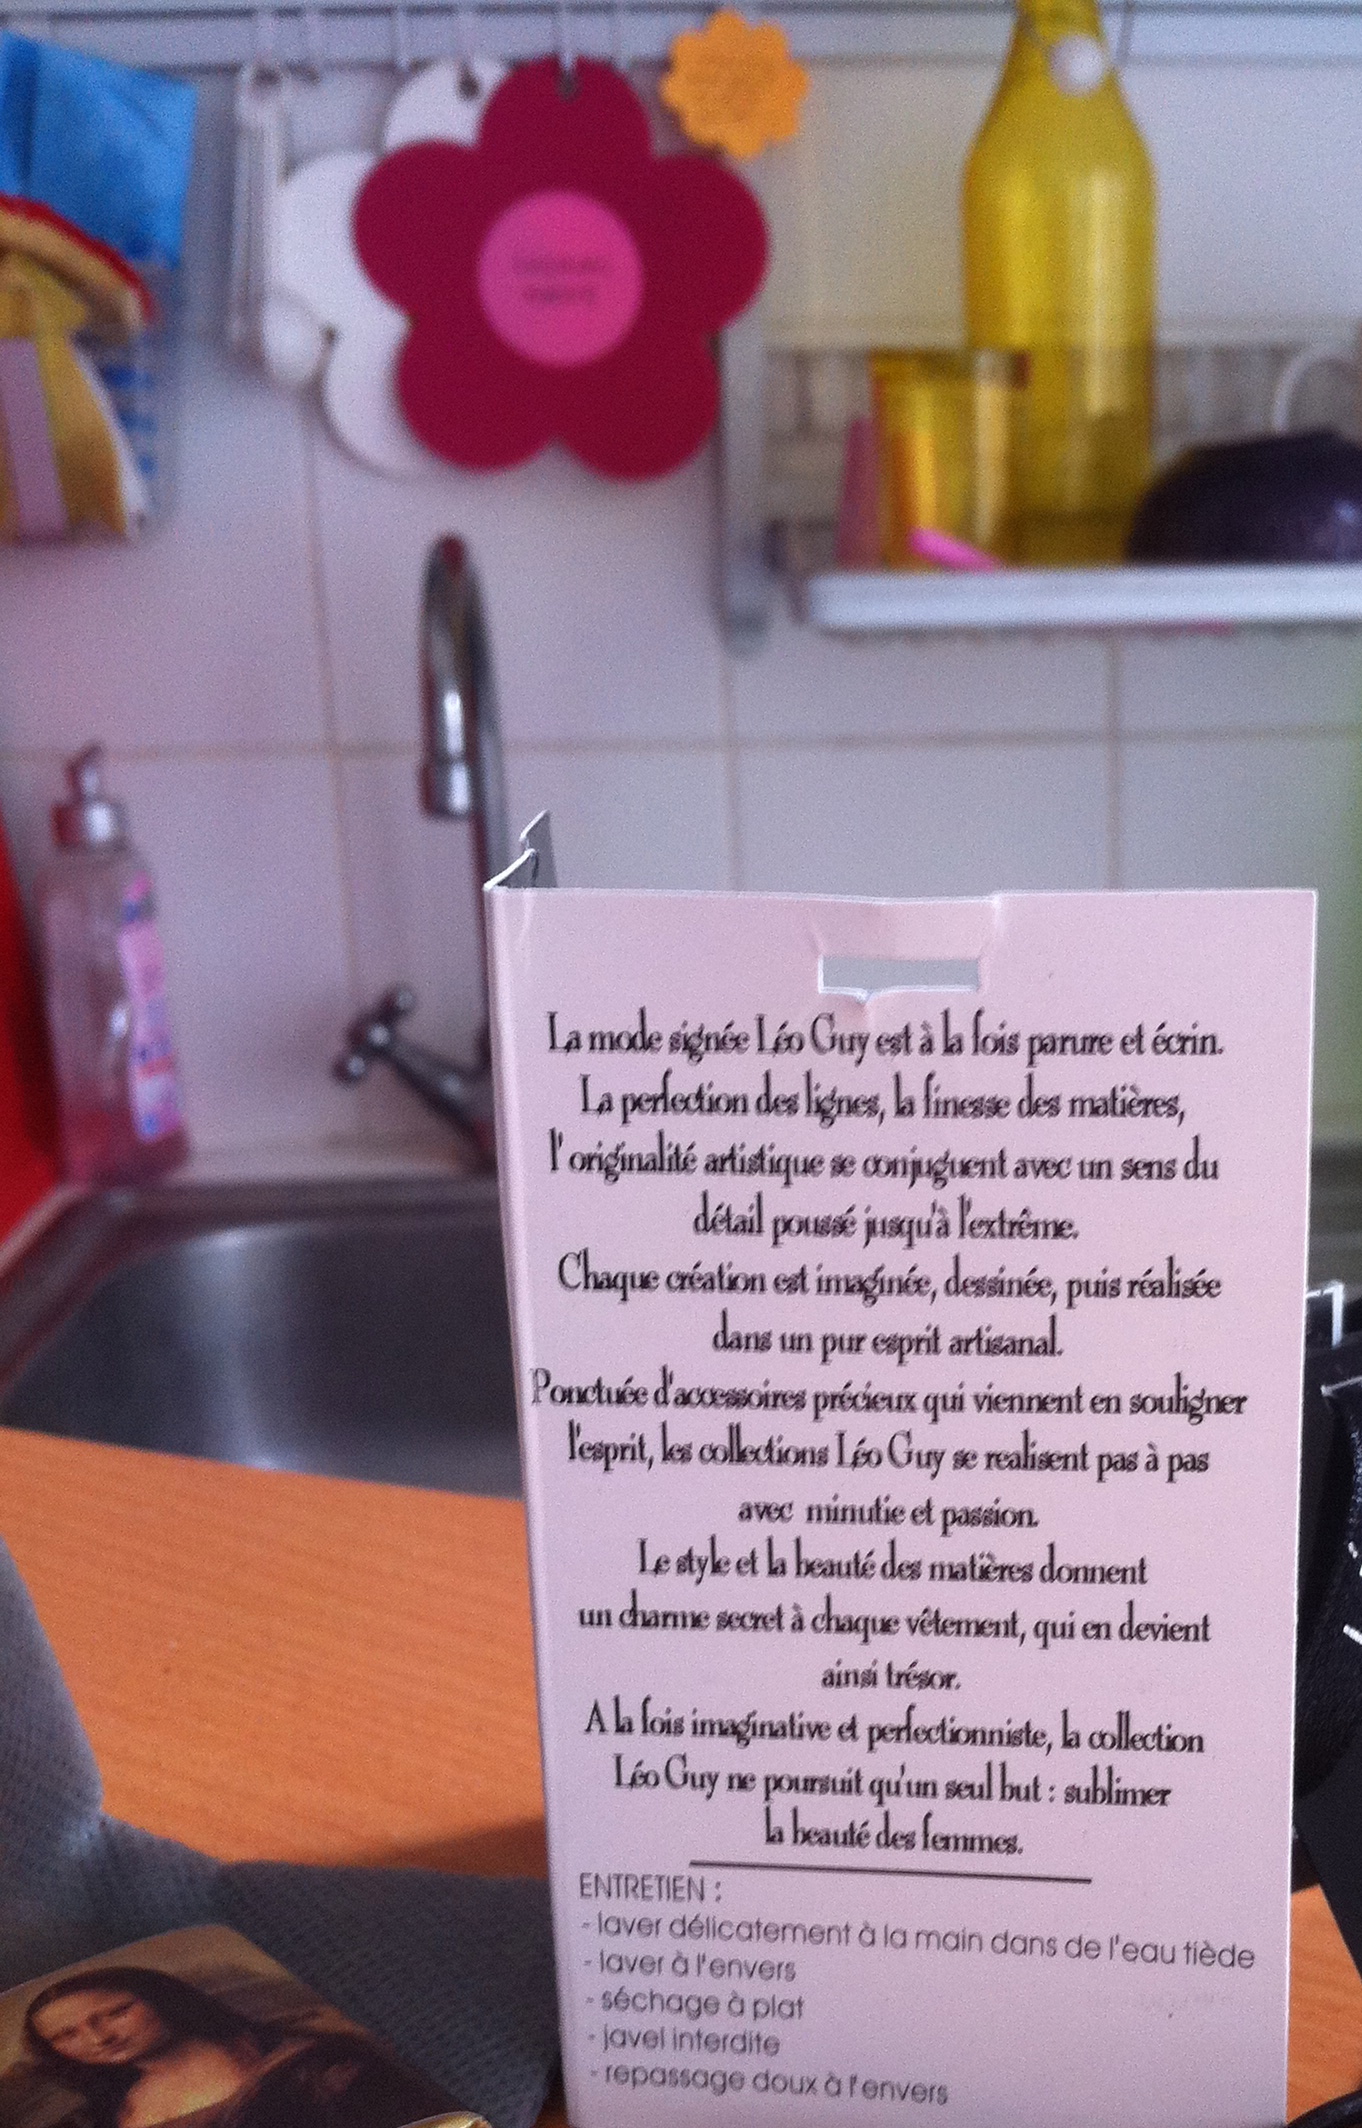 La mode signée Léo Guy est à la fois parure et écrin.
La perfection des lignes, la finesse des matières,
l'originalité artistique se conjuguent avec un sens du
détail poussé jusqu'à l'extrême.
Chaque création est imaginée, dessinée, puis réalisée
dans un pur esprit artisanal.
Ponctuée d'accessoires précieux qui viennent en souligner
l'esprit, les collections Léo Guy se realisent pas à pas
avec minutie et passion.
Le style et la beauté des matières donnent
un charme secret à chaque vêtement, qui en devient
ainsi trésor.
A la fois imaginative et perfectionniste, la collection
Léo Guy ne poursuit qu'un seul but : sublimer
la beauté des femmes.
ENTRETIEN :
- laver délicatement à la main dans de l'eau tiède
- laver à l'envers
- séchage à plat
- javel interdite
- repassage doux à l'envers